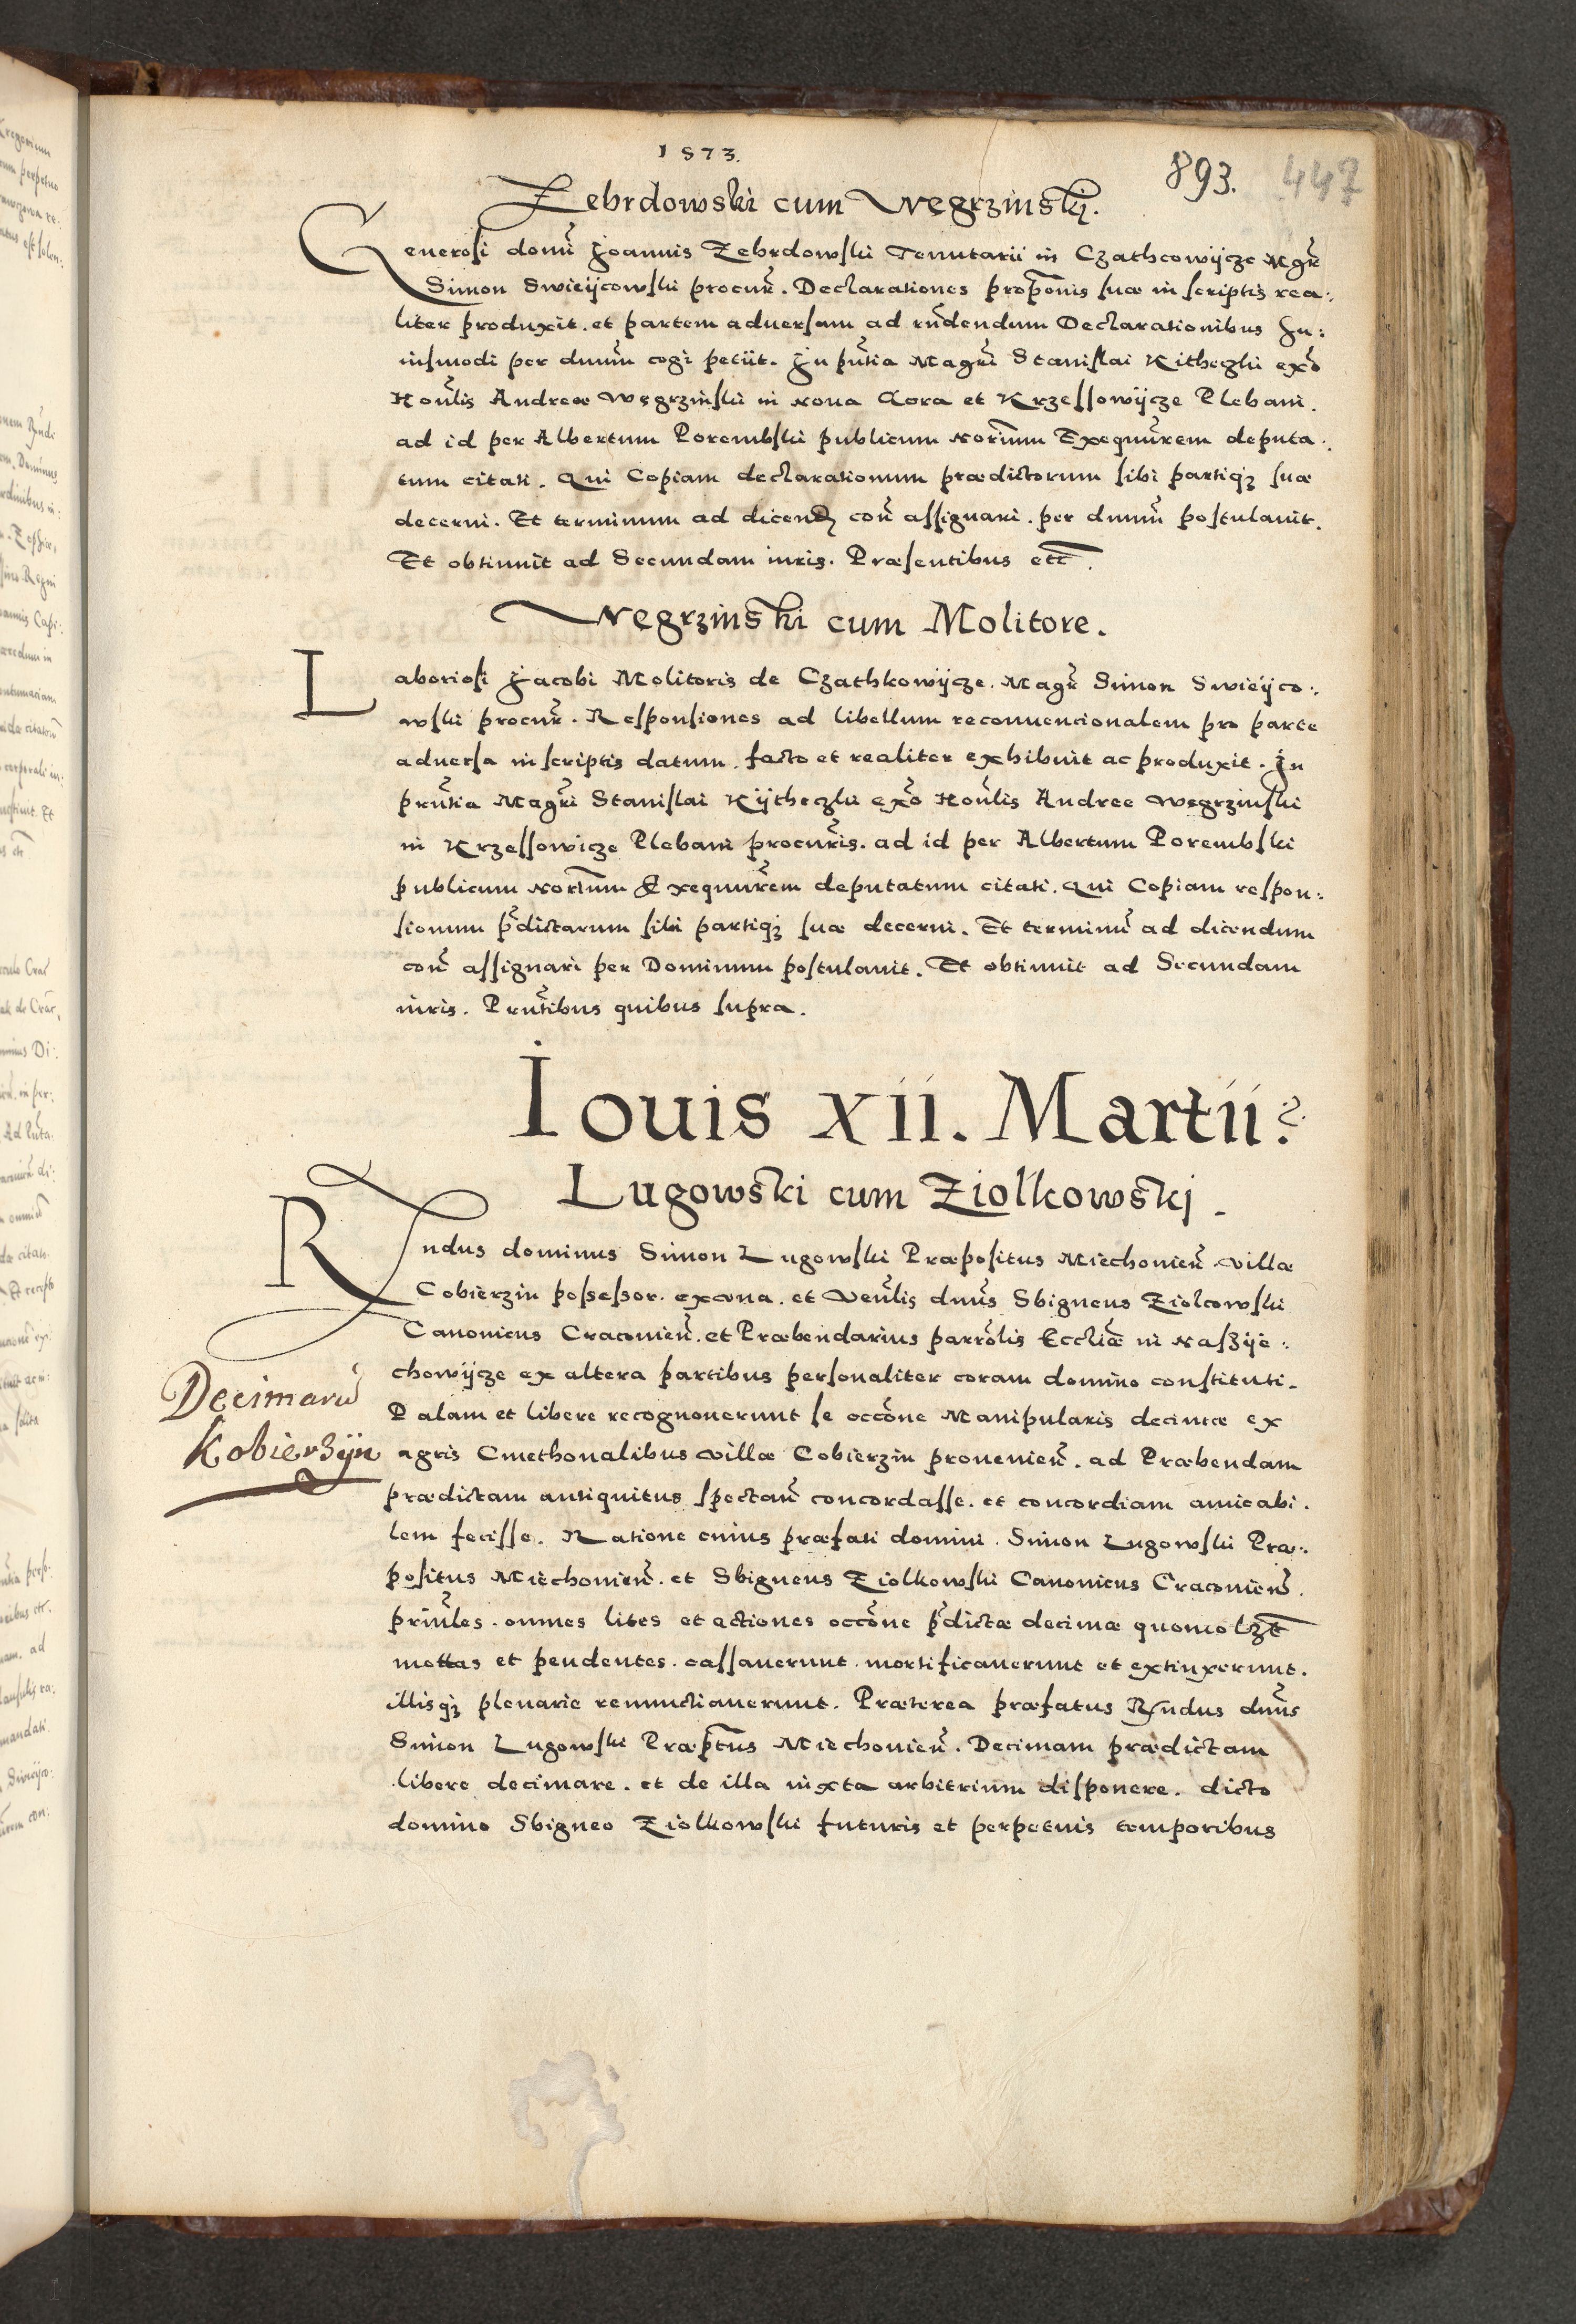 1573.
893. 447
Zebrdowski cum Wegrzinskj.
Generosi domi Joannis Zebrdowski Tenutarii in Czathcowijcze Mgr
Simon Swieijcowski procur. Declarationes proponis suæ in scriptis rea:
liter produxit. et partem aduersam ad rndendum Declarationibus Hu:
iusmodi per dnum cogi petiit. In pntia Magri Stanislai Kitheczki exo
Honlis Andreæ Wegrzinski in Noua Gora et Krzessowijcze Plebani.
ad id per Albertum Porembski publicum Norium Exequurem deputa:
tum citati. Qui Copiam declarationum prædictorum sibi partiqz suæ
decerni. Et terminum ad dicend con assignari. per dnum postulauit.
Et obtinuit ad Secundam iuris. Præsentibus etc.
Wegrzinski cum Molitore.
Laboriosi Jacobi Molitoris de Czathkowijcze. Magr Simon Swieijco:
wski procur. Responsiones ad libellum reconuencionalem pro parte
aduersa in scriptis datum. facto et realiter exhibuit ac produxit. In
prntia Magri Stanislai Kijtheczki exo Honlis Andree Wegrzinski
in Krzessowicze Plebani procuris. ad id per Albertum Porembski
publicum Norium Exequurem deputatum citati. Qui Copiam respon:
sionum pdictarum sibi partiqz suæ decerni. Et terminu ad dicendum
con assignari per Dominum postulauit. Et obtinuit ad Secundam
iuris. Prntibus quibus supra.
Iouis xii. Martii.
Lugowski cum Ziolkowskj.
Rndus dominus Simon Lugowski Præpositus Miechouien. villæ
Cobierzin possessor. ex vna. et Venlis dnus Sbigneus Ziolcowski
Canonicus Cracouien. et Præbendarius parrolis Eccliæ in Raszije:
chowijcze ex altera partibus personaliter coram domino constituti.
Palam et libere recognouerunt se occone Manipularis decimæ ex
Decimaru
Kobierzijn
agris Cmethonalibus villæ Cobierzin prouenien. ad Præbendam
prædictam antiquitus spectan concordasse. et concordiam amicabi.
lem fecisse. Ratione cuius præfati domini. Simon Lugowski Præ:
positus Miechouien. et Sbigneus Ziolkowski Canonicus Cracouien.
prinles. omnes lites et actiones occone pdictæ decimæ quomolzt
mottas et pendentes. cassauerunt. mortificauerunt et extinxerunt.
illisqz plenarie renunctiauerunt. Præterea præfatus Rndus dnus
Simon Lugowski Præptus Miechouien. Decimam prædictam
libere decimare. et de illa iuxta arbitrium disponere. dicto
domino Sbigneo Ziolkowski futuris et perpetuis temporibus